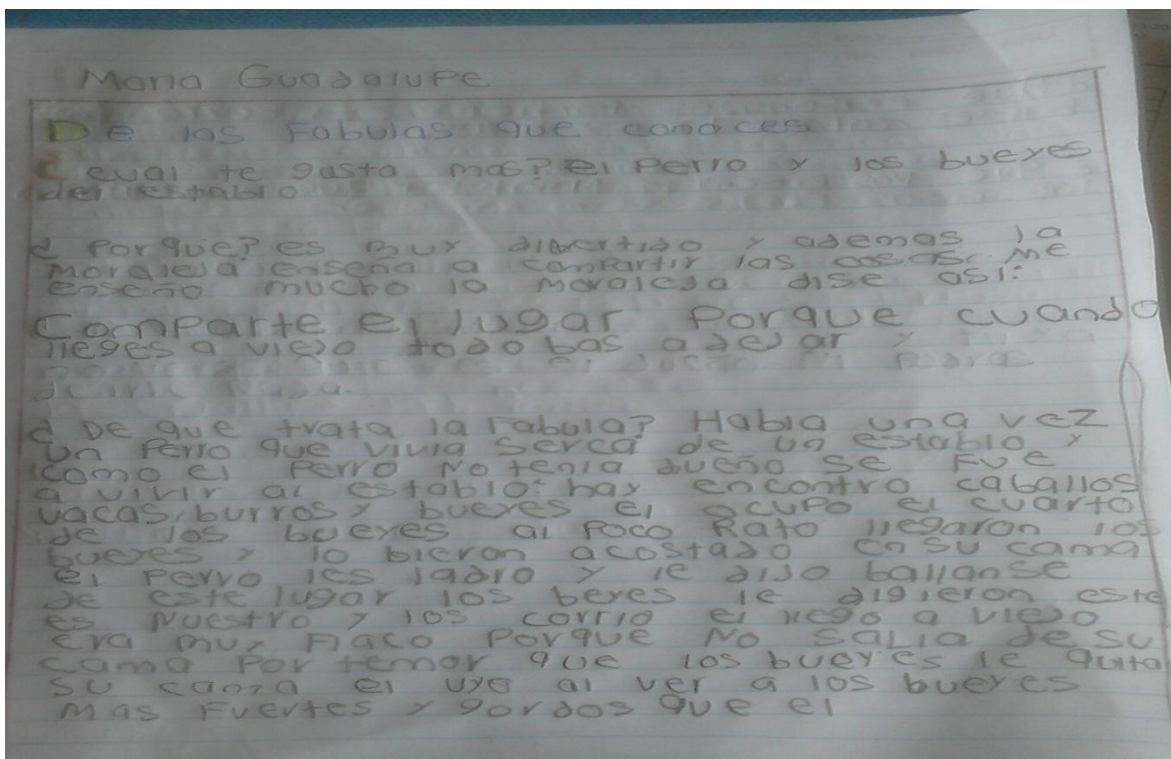 Maria Guadalupe
De las Fabulas que conoces
¿ cual te gusta mas? el Perro y los bueyes
del establo
¿ Por que? es muy divertido y ademas la
moraleja enseña a compartir las cosas. Me
enseño mucho la moraleja dise asi:
Comparte el lugar Porque cuando
lleges a viejo todo bas a dejar y
el dueño
¿ De que trata la Fabula? Habia una vez
un Perro que vivia serca de un establo y
como el Perro No tenia dueño se Fue
a vivir al establo: hay encontro caballos
vacas, burros y bueyes el ocupo el cuarto
de los bueyes al Poco Rato llegaron los
bueyes y lo bieron acostado en su cama
el Perro les ladro y le dijo ballanse
de este lugar los beyes le digieron este
es Nuestro y los corrio el llego a viejo
era muy Flaco Porque No salia de su
cama Por temor que los bueyes le quita
su cama el uyo al ver a los bueyes
mas Fuertes y gordos que el